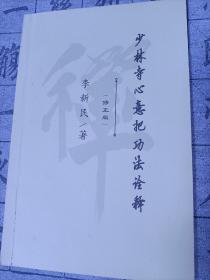 少林寺心意把功法诠释
修正版
李新民/著
禅